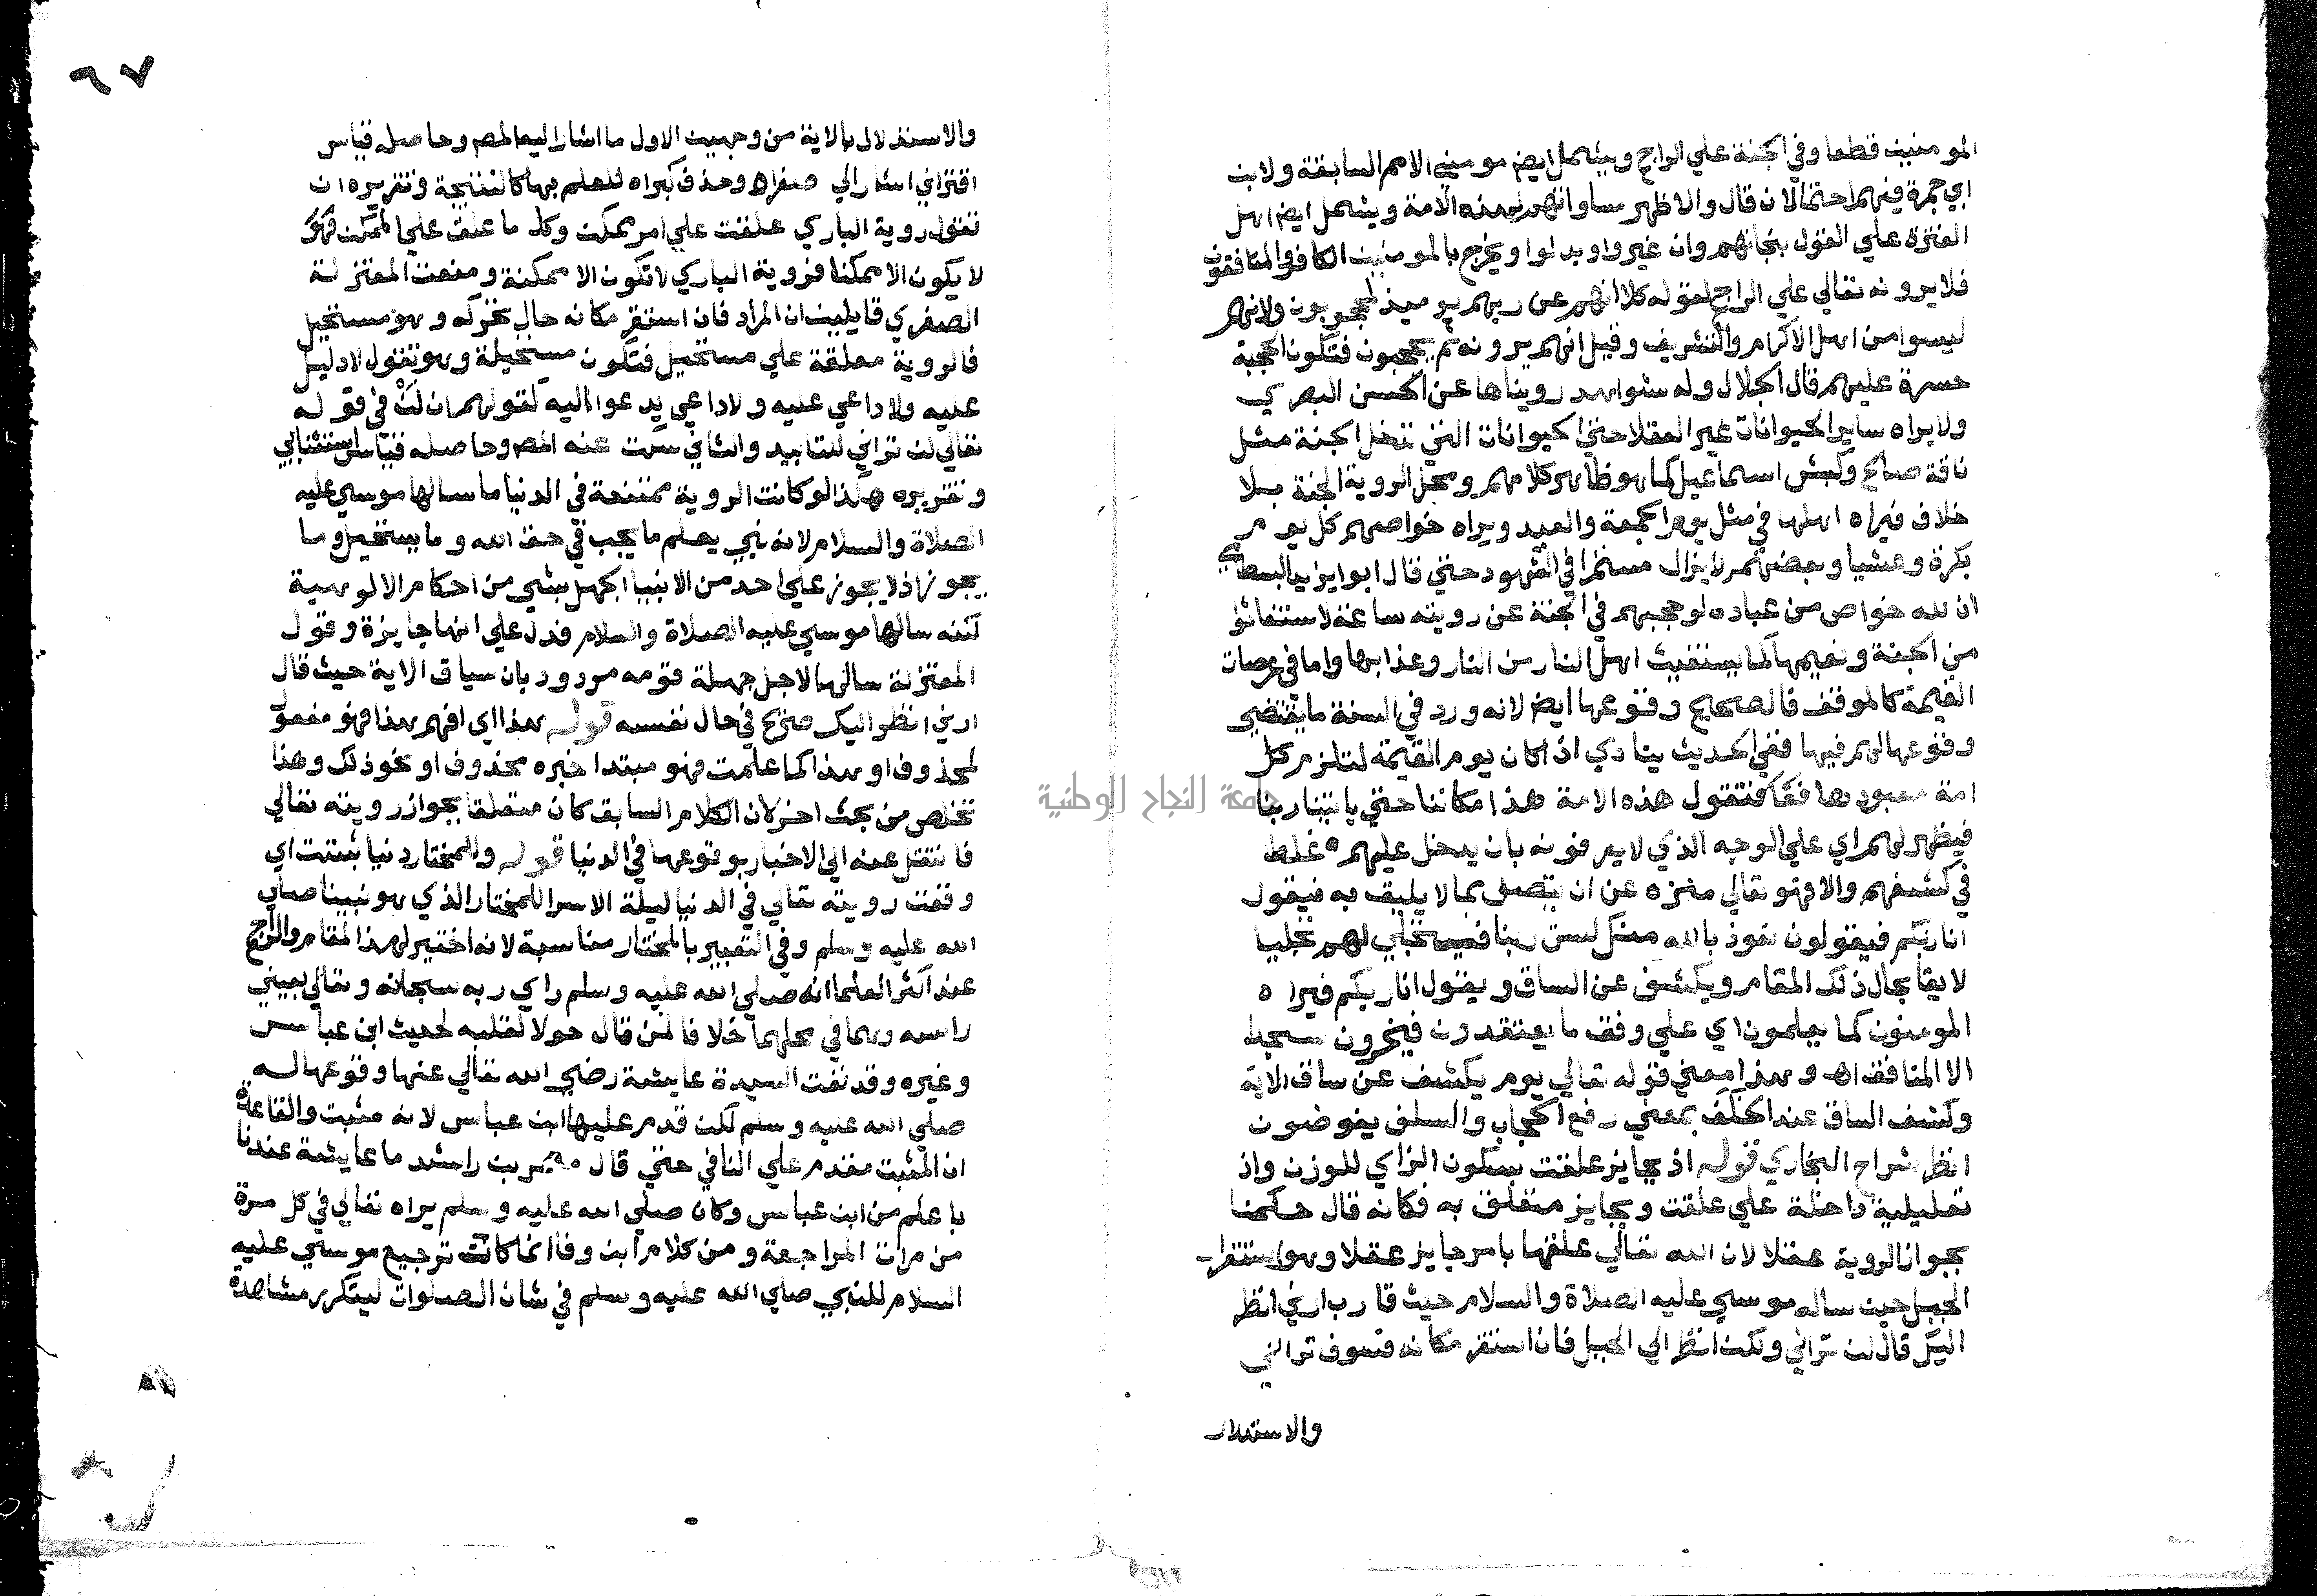 المومنين قطعا وفي الجنة علي الراجح ويشمل ايض مومني الامم السابقة ولابن
ابي جمرة فيهم احتمالان قال والاظهر مساواتهم لهذه الامة ويشمل ايض اهل
الفترة علي القول بنجاتهم وان غيروا وبدلوا ويخرج بالمومنين الكافر والمنافقون
فلا يرونه تعالي علي الراجح لقوله كلا انهم عن ربهم يوميذ لمحجوبون ولانهم
ليسوا من اهل الاكرام والتشريف وقيل انهم يرونه ثم يحجبون فتكون الحجبة
حسرة عليهم قال الجلال وله شواهد رويناها عن الحسن البصري
ولا يراه ساير الحيوانات غير العقلا حتي الحيوانات التي تدخل الجنة مثل
ناقة صالح وكبش اسماعيل كما هو ظاهر كلامهم ومحل الروية الجنة بلا
خلاف فيراه اهلها في مثل يوم الجمعة والعيد ويراه خواصهم كل يوم
بكرة وعشيا وبعضهم لا يزال مستمرا في الشهود حتي قال ابو ايزيد البسطامي
ان لله خواص من عباده لو حجبهم في الجنة عن رويته ساعة لاستغاثوا
من الجنة ونعيمها كما يستغيث اهل النار من النار وعذابها واما في عرصات
القيمة كالموقف فالصحيح وقوعها ايض لانه ورد في السنة ما يقتضي
وقوعها لهم فيها ففي الحديث ينادي اذا كان يوم القيمة لتلزم كل
امة معبودها فتقول هذه الامة هذا مكاننا حتي ياتينا ربنا
فيظهر لهم اي علي الوجه الذي لا يعرفونه بان يدخل عليهم غلط
في كشفهم والا فهو تعالي منزه عن ان يتصف بما لا يليق به فيقول
انا ربكم فيقولون نعوذ بالله منك لست ربنا فيتجلي لهم تجليا
لايقا بحال ذلك المقام ويكشف عن الساق ويقول انا ربكم فيراه
المومنون كما يعلمون اي علي وفق ما يعتقدون فيخرون سجدا
الا المنافق اه وهذا معني قوله تعالي يوم يكشف عن ساق الاية
وكشف الساق عند الخلف بمعني رفع الحجاب والسلف يفوضون
انظر شراح البخاري قوله اذ بجايز علقت بسكون الزاي للوزن واذ
تعليلية داخلة علي علقت وبجايز متعلق به فكانه قال حكمنا
بجواز الروية عقلا لان الله تعالي علقها بامر جايز عقلا وهو استقرار
الجبل حين ساله موسي عليه الصلاة والسلام حيث قا رب ارني انظر
اليك قال لن تراني ولكن انظر الي الجبل فان استقر مكانه فسوف تراني
والاستدلال
٦٧
والاستدلال بالاية من وجهين الاول ما اشار اليه المص وحاصله قياس
اقتراني اشار الي صغراه وحذف كبراه للعلم بها كالنتيجة وتقريره ان
تقول روية الباري علقت علي امر ممكن وكل ما علق علي الممكن فهو
لا يكون الا ممكنا فروية الباري لا تكون الا ممكنة ومنعت المعتزلة
الصغري قايلين ان المراد فان استقر مكانه حال تحركه وهو مستحيل
فالروية معلقة علي مستحيل فتكون مستحيلة وهو تقول لا دليل
عليه ولا داعي عليه ولا داعي يدعوا اليه لقولهم ان لن في قوله
تعالي لن تراني للتابيد والثاني سكت عنه المص وحاصله قياس استثنائي
وتقريره هكذا لو كانت الروية ممتنعة في الدنيا ما سالها موسي عليه
الصلاة والسلام لانه نبي يعلم ما يجب في حق الله وما يستحيل وما
يجوز اذ لا يجوز علي احد من الانبيا الجهل بشي من احكام الالوهية
لكنه سالها موسي عليه الصلاة والسلام فدل علي انها جايزة وقول
المعتزلة سالها لاجل جهلة قومه مردود بان سياق الاية حيث قال
ارني انظر اليك صريح في حال نفسه قوله هذا اي افهم هذا فهو مفعول
لمحذوف او هذا كما علمت فهو مبتدا خبره محذوف او نحو ذلك وهذا
تخلص من بحث اخر لان الكلام السابق كان متعلقا بجواز رويته تعالي
فانتقل عنه الي الاخبار بوقوعها في الدنيا قوله وللمختار دنيا ثبتت اي
وقعت رويته تعالي في الدنيا ليلة الاسرا للمختار الذي هو نبينا صلي
الله عليه وسلم وفي التعبير بالمختار مناسبة لانه اختير لهذا المقام والراجح
عند اكثر العلما انه صلي الله عليه وسلم راي ربه سبحانه وتعالي بعيني
راسه وهما في محلهما خلافا لمن قال حولا لقلبه لحديث ابن عباس
وغيره وقد نفت السيدة عايشة رضي الله تعالي عنها وقوعها له
صلي الله عليه وسلم لكن قدم عليها ابن عباس لانه مثبت والقاعدة
ان المثبت مقدم علي النافي حتي قال معمر بن راشد ما عايشة عندنا
باعلم من ابن عباس وكان صلي الله عليه وسلم يراه تعالي في كل مرة
من مرات المراجعة ومن كلام ابن وفا انما كانت ترجيع موسي عليه
السلام للنبي صلي الله عليه وسلم في شان الصلوات ليتكرر مشاهدة
جامعة النجاح الوطنية